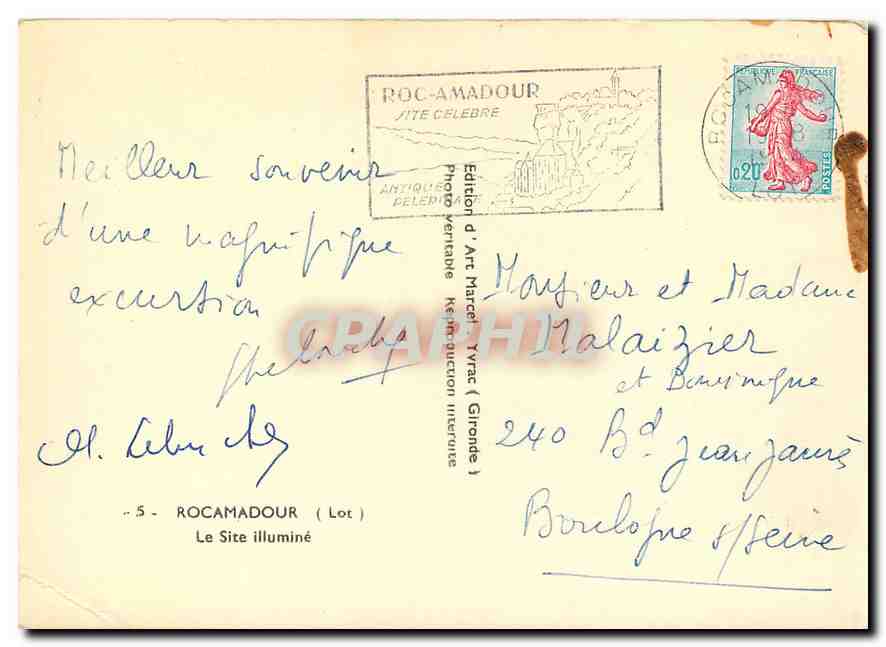 ROC-AMADOUR
SITE CELEBRE
ANTIQUE
PELERINAGE
REPUBLIQUE FRANÇAISE
0.20
POSTES
Meilleur souvenir
d'une magnifique
excursion
- 5 - ROCAMADOUR ( Lot )
Le Site illuminé
Edition d'Art Marcel - Yvrac ( Gironde )
Photo véritable Reproduction interdite
Monsieur et Madame
Malaizier
et
240 Bd Jean Jaurès
Boulogne s/Seine
CPAPHIL